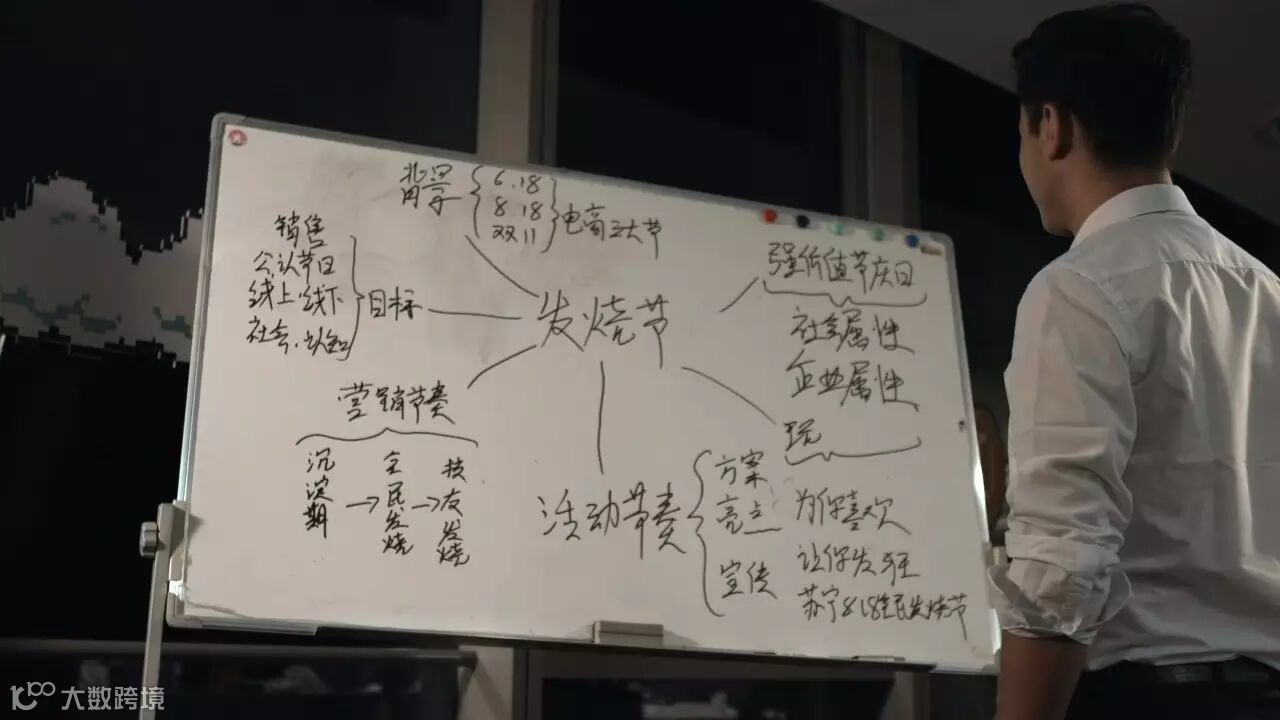 背景
6.18
8.18
双11
电商三大节
销售
公认节日
线上·线下
社会认知
目标
发烧节
强价值节庆日
社会属性
企业属性
玩
为你喜欢
让你发狂
苏宁818全民发烧节
营销节奏
沉淀期
→
全民发烧
→
技友发烧
活动节奏
方案
亮点
宣传
大数跨境